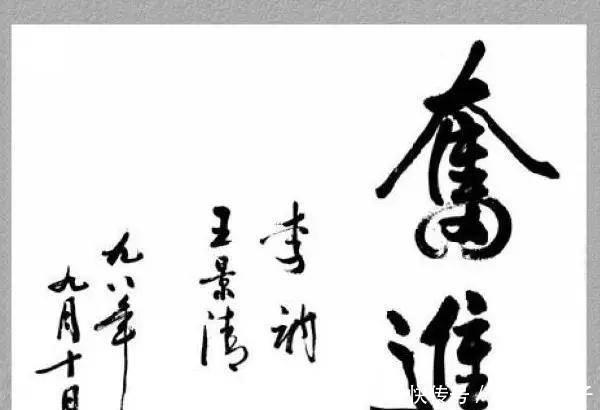 奮進
李訥
王景清
九八年
九月十日
快传号/